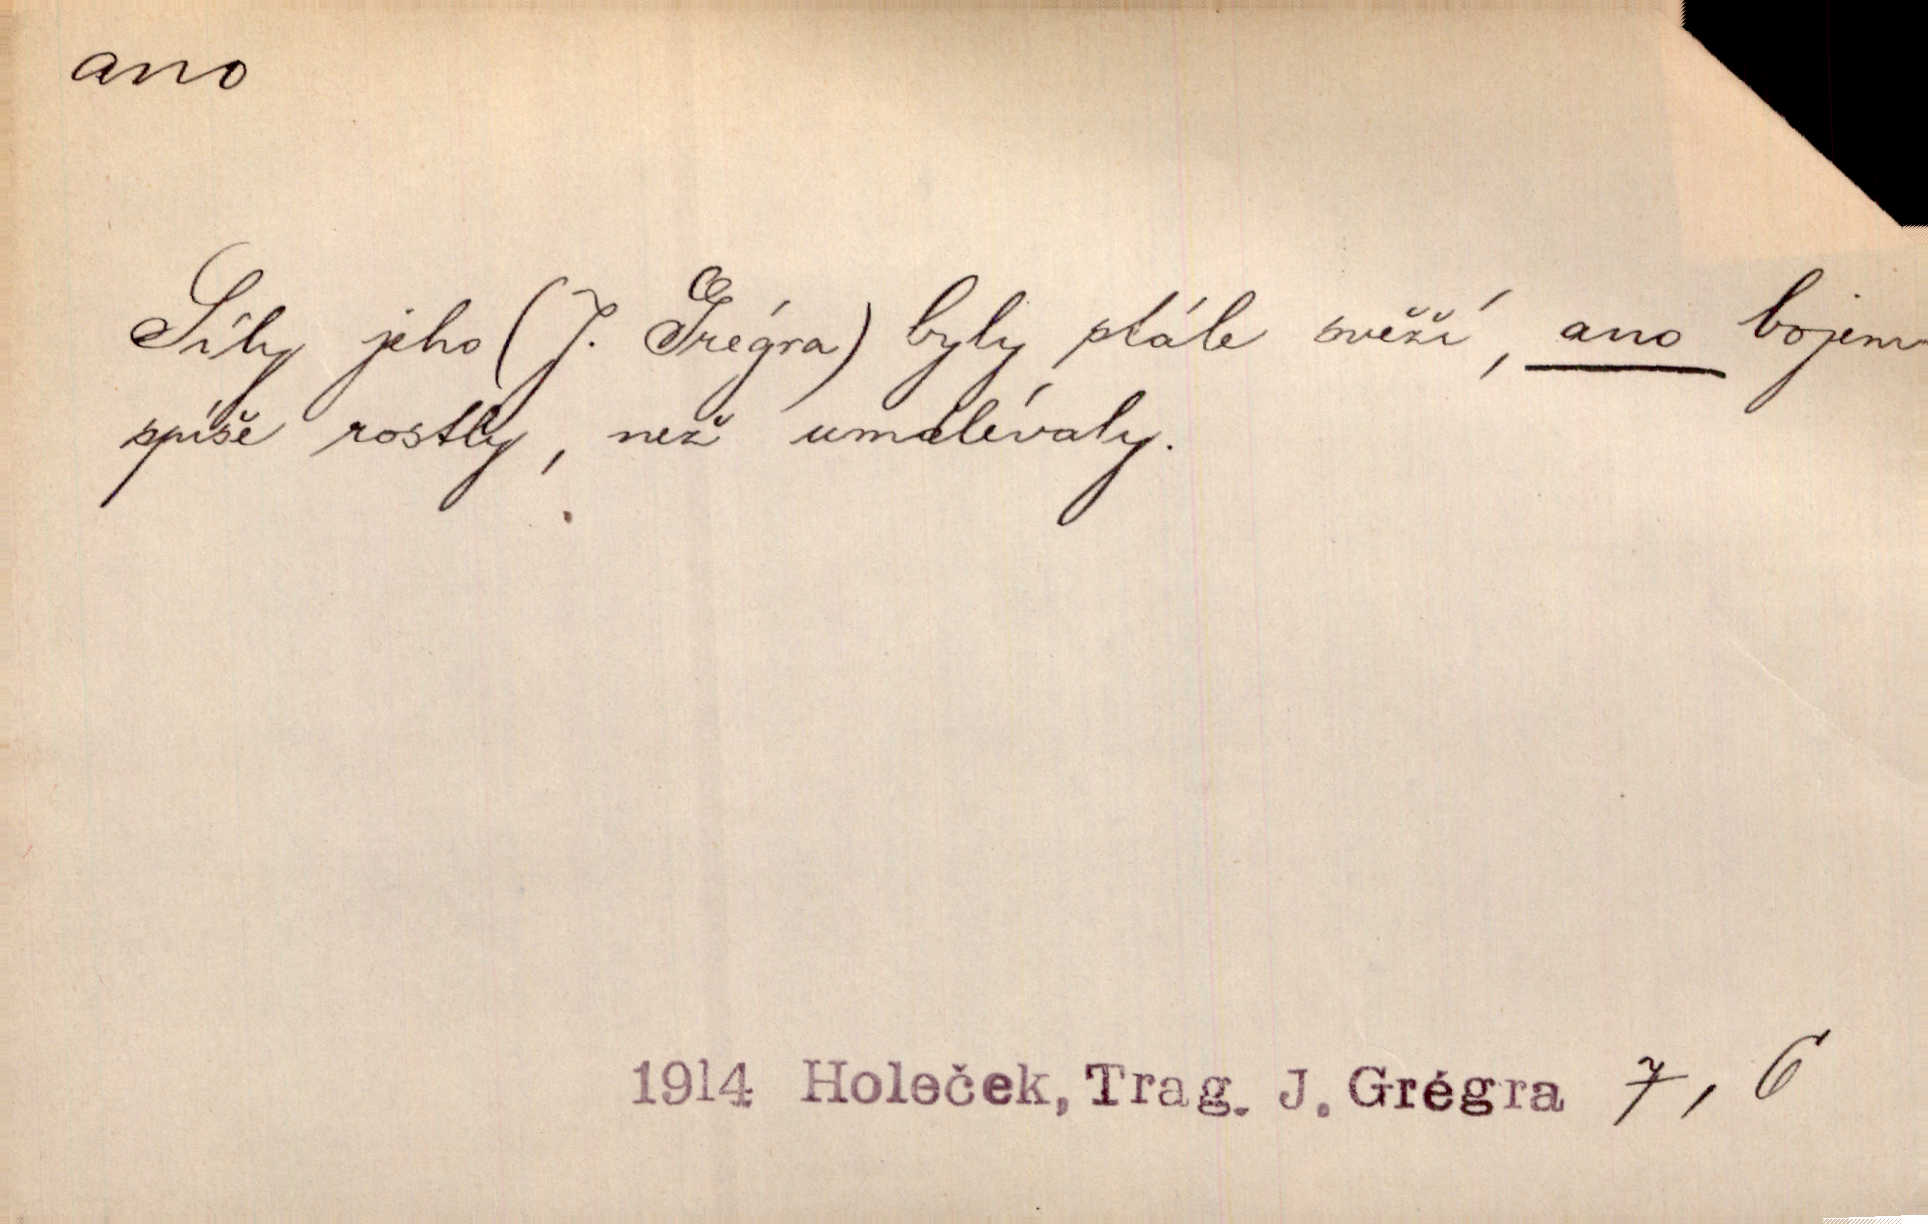 ano
Síly jeho (J. Grégra) byly stále svěží, ano bojem
spíše rostly, než umdlévaly.
1914 Holeček, Trag. J. Grégra 7, 6